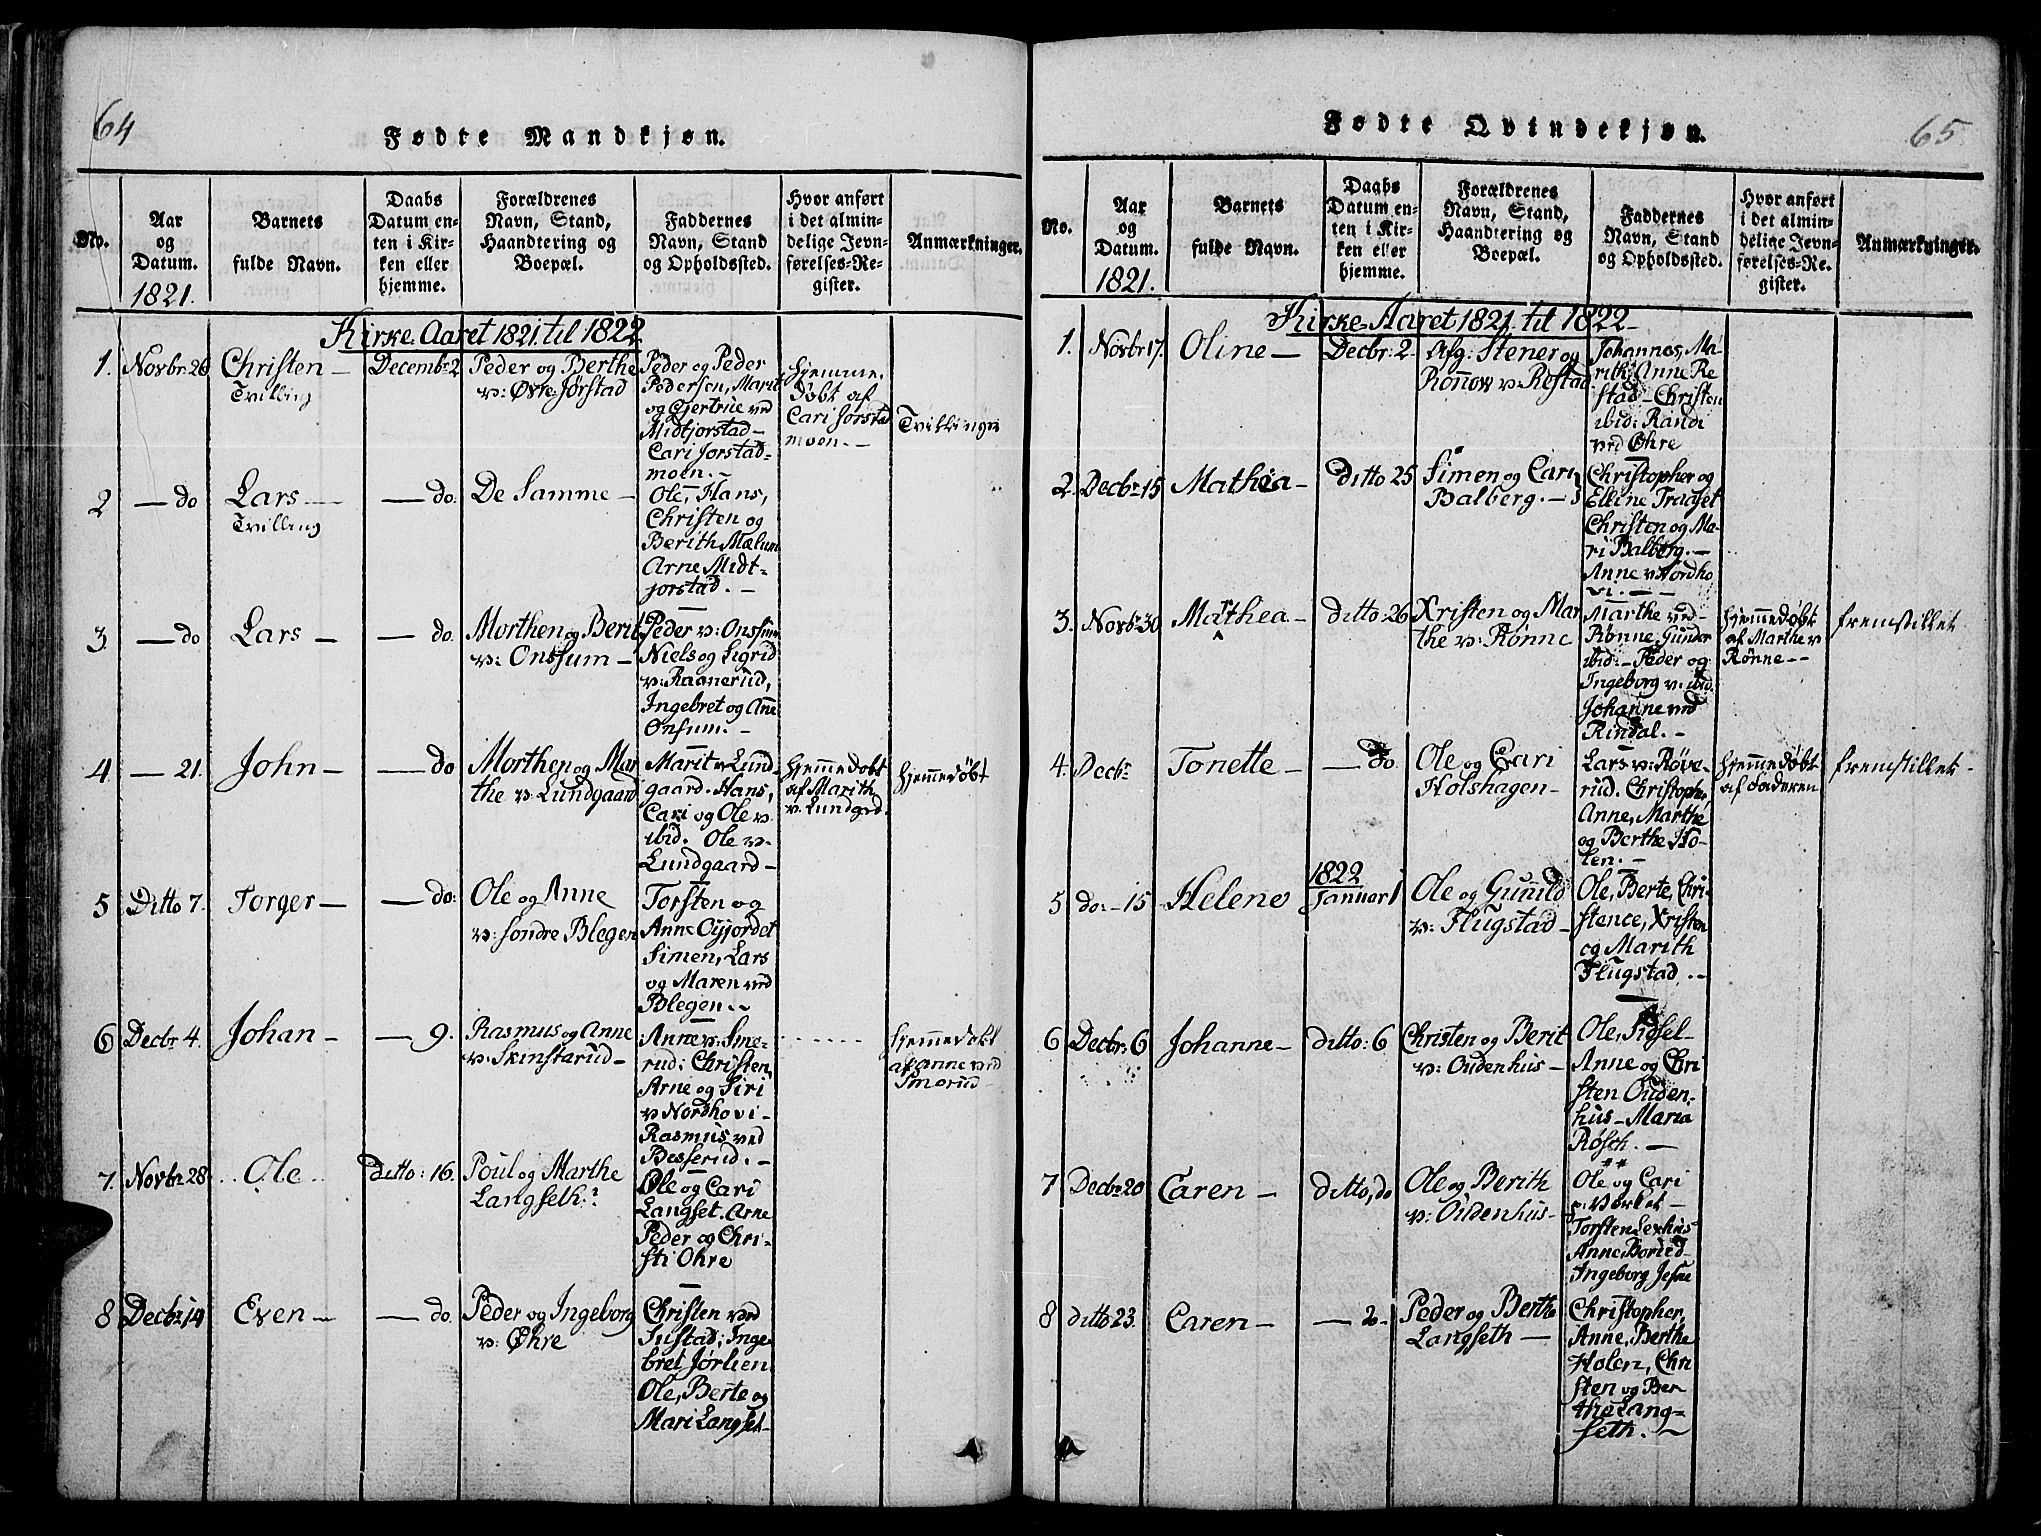 64
Fødte Mandkjøn.
No.
Aar
og
Datum.
1821.
Barnets
fulde Navn.
Daabs
Datum en-
ten i Kir-
ken eller
hjemme.
Forældrenes
Navn, Stand,
Haandtering og
Boepæl.
Faddernes
Navn, Stand
og Opholdssted.
Hvor anført
i det almin-
delige Jevn-
førelses-Re-
gister.
Anmærkninger.
Kirke-Aaret 1821 til 1822
1. Novbr: 26
Christen —
Tvilling
Decembr 2
Peder og Berthe
v: Øvre Jørstad
Peder og Peder
Pedersen, Marit
og Gjertrue ved
Midtjorstad —
Cari Jorstad-
moen. —
Hjemme
døbt af
Cari Jorstad
moen. —
Tvillinger
2 — do
Lars —
Tvilling
— do:
De Samme —
Ole, Hans,
Christen og
Berith Mælum
Arne Midt-
jorstad. —
3 — do
Lars —
— do.
Morthen og Berit
v: Onssum —
Peder v: Onssum
Niels og Sigrid
v: Raanerud,
Ingebret og Ane
Onsum. —
4. — 21.
John —
— do
Morthen og Mar
the v: Lundgaard
Marit v: Lund-
gaard. Hans,
Cari og Ole v:
ibid. Ole v:
Lundgaard —
Hjemmedøbt
af Marith
v: Lundgrd.
Hjemmedøbt
5 Ditto 7.
Torger —
— do:
Ole og Anne
v: søndre Blegen
Torsten og
Anne Oyjordet
Simen, Lars
og Maren ved
Blegen. —
6 Decbr: 4.
Johan —
— 9.
Rasmus og Anne
v: Skinstarud —
Anne v: Sme-
rud; Christen,
Arne og Siri
v: Nordhovi —
Rasmus ved
Besserud. —
Hjemmedøbt
af anne ved
Smerud —
7. Novbr: 28
Ole
ditto: 16.
Poul og Marthe
Langseth:
Ole og Cari
Langset. Arne
Peder og Chri-
sti Ohre
8 Decbr: 14
Even —
— do.
Peder og Ingeborg
v: Øhre
Christen ved
Sustad; Inge-
bret Jørlien
Ole, Berte og
Mari Langset —
65
Fødte Qvindekjøn.
No.
Aar
og
Datum.
1821.
Barnets
fulde Navn.
Daabs
Datum en-
ten i Kir-
ken eller
hjemme.
Forældrenes
Navn, Stand,
Haandtering og
Boepæl.
Faddernes
Navn, Stand
og Opholdssted.
Hvor anført
i det almin-
delige Jevn-
førelses-Re-
gister.
Anmærkninger.
Kirke-Aaret 1821 til 1822 —
1. Novbr 17.
Oline —
Decbr: 2.
Afg: Stener og
Rønnow v: Rostad.
Johannes, Ma-
rith; Anne Re-
stad — Christen
ibid: Randi
ved Øhre
2. Decbr 15
Mathea —
ditto 25
Simen og Cari
Balberg. —
Christopher og
Ellene Traaset
Christen og Ma-
ri Balberg. —
Anne v: Nordho
vi. —
3. Novbr 30
Marthea —
ditto: 26
Xristen og Mar
the v: Rønne
Marthe ved
Rønne, Gunder
ibid. — Peder og
Ingeborg v: ibid.
Johanne ved
Rindal. —
Hjemmedøbt
af Marthe v:
Rønne —
fremstillet
4. Decbr
Tonette —
— do.
Ole og Cari
Holshagen —
Lars v: Røve-
rud. Christoph:
Anne, Marthe
og Berthe Ho-
len. —
Hjemmedøbt
af Faderen
fremstillet —
5 do: — 15
Helene
1822
Januar 1
Ole og Gunild
v: Flugstad —
Ole, Berte, Chri-
stence, Xristen
og Marith
Flugstad. —
6 Decbr: 6
Johanne —
ditto: 6
Christen og Berit
v: Oudenhus —
Ole, Sidsel —
Anne og Chri
sten Ouden-
hus — Maria
Røsch. —
7 Decbr 20
Caren —
ditto, do
Ole og Berith
v: Oudenhus —
Ole og Cari
v: Verket —
Torsten Lexhus
Anne Borud —
Ingeborg Jesne
8 ditto 23.
Caren —
— 2.
Peder og Berthe
Langseth —
Christopher,
Anne, Berthe
Holen, Chri
sten og Ber
the Lang-
seth. —